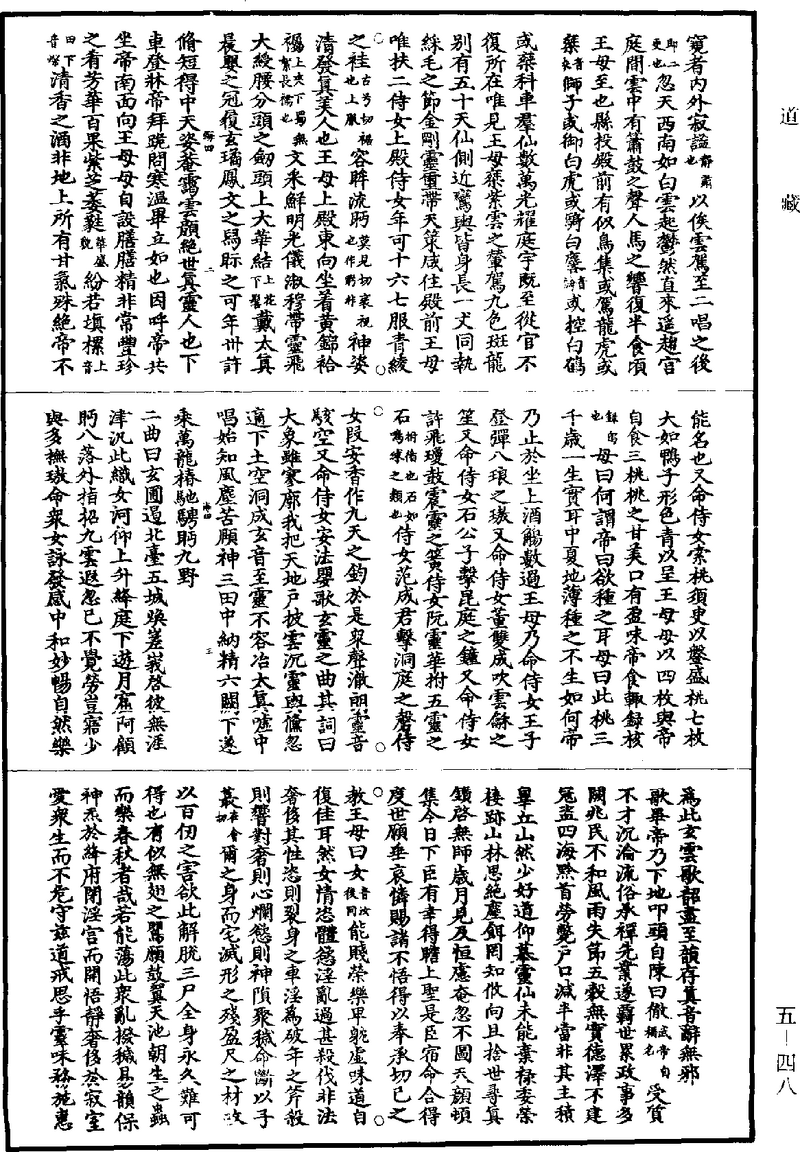 寬者內外寂謐靜肅也以俟雲駕至二唱之後
即二更也忽天西南如白雲起鬱然直來逕趨宮
庭間雲中有簫鼓之聲人馬之響復半食頃
王母至也縣投殿前有似鳥集或駕龍虎或
乘師子或御白虎或騎白麐或控白鶴
或乘科車羣仙數萬光耀庭宇既至從官不
復所在唯見王母乘紫雲之輦駕九色斑龍
別有五十天仙側近鸞輿皆身長一丈同執
綵毛之節金剛靈璽帶天策咸住殿前王母
唯扶二侍女上殿侍女年可十六七服青綾
之袿裾也上服容眸流眄莫見切衺視也作眄非神姿
清發真美人也王母上殿東向坐着黃錦袷
上夾下蜀無絮長襦也文采鮮明光儀淑穆帶靈飛
大綬腰分頭之劒頭上大華結上花下髻戴太真
晨嬰之冠履玄璚鳳文之舄眎之可年卅許
脩短得中天姿菴靄雲顏絕世真靈人也下
車登牀帝拜跪問寒溫畢立如也因呼帝共
坐帝南面向王母母自設膳膳精非常豐珍
之肴芳華百果紫芝萎蕤華盛皃紛若填樏上音
田下音壘清香之酒非地上所有甘氣殊絕帝不
能名也又命侍女索桃須臾以鎜盛桃七枚
大如鴨子形色青以呈王母母以四枚與帝
自食三桃桃之甘美口有盈味帝食輙録核
母曰何謂帝曰欲種之耳母曰此桃三
千歲一生實耳中夏地薄種之不生如何帝
乃止於坐上酒觴數過王母乃命侍女王子
登彈八琅之璈又命侍女董雙成吹雲龢之
笙又命侍女石公子擊昆庭之鐘又命侍女
許飛瓊鼓震靈之簧侍女阮靈華拊五靈之
石拊擣也石如鳴球之類也侍女范成君擊洞庭之磬侍
女段安香作九天之鈞於是衆聲澈朗靈音
駭空又命侍女安法嬰歌玄靈之曲其詞曰
大象雖寥廓我把天地戶披雲沉靈輿儵忽
適下土空洞成玄音至靈不容冶太真噓中
唱始知風塵苦頤神三田中納精六闕下遂
乘萬龍椿馳騁眄九野
二曲曰玄圃遏北臺五城煥嵳峩啓彼無涯
津汎此織女河仰上升絳庭下遊月窟阿顧
眄八落外指招九雲遐忽已不覺勞豈寤少
與多撫璈命衆女詠發感中和妙暢自然樂
為此玄雲歌韶盡至韻存真音辭無邪
歌畢帝乃下地叩頭自陳曰徹武帝自稱名受質
不才沉淪流俗承禪先業遂羇世累政事多
闕兆民不和風雨失節五穀無實德澤不建
寇盜四海黔首勞斃戶口減半當非其主積
辠丘山然少好道仰慕靈仙未能棄祿委榮
棲跡山林思絕塵餌罔知攸向且捨世尋真
鑽啓無師歲月見及恒慮奄忽不圖天顏頓
集今日下臣有幸得瞻上聖是臣宿命合得
度世願垂哀憐賜諸不悟得以奉承切已之
教王母曰女音汝後同能賤榮樂卑躭虛味道自
復佳耳然女情恣體慾淫亂過甚殺伐非法
奢侈其性恣則裂身之車淫為破年之斧殺
則響對奢則心爛慾則神隕聚穢命斷以子
蕞爾之身而宅滅形之殘盈尺之材攻
以百仞之害欲此解脫三尸全身永久難可
得也有似無翅之鸎願鼓翼天池朝生之蟲
而樂春秋者哉若能蕩此衆亂撥穢易韻保
神炁於絳府閉淫宮而開悟靜奢侈於寂室
愛衆生而不危守兹道戒思乎靈味務施惠
道藏
五—四八